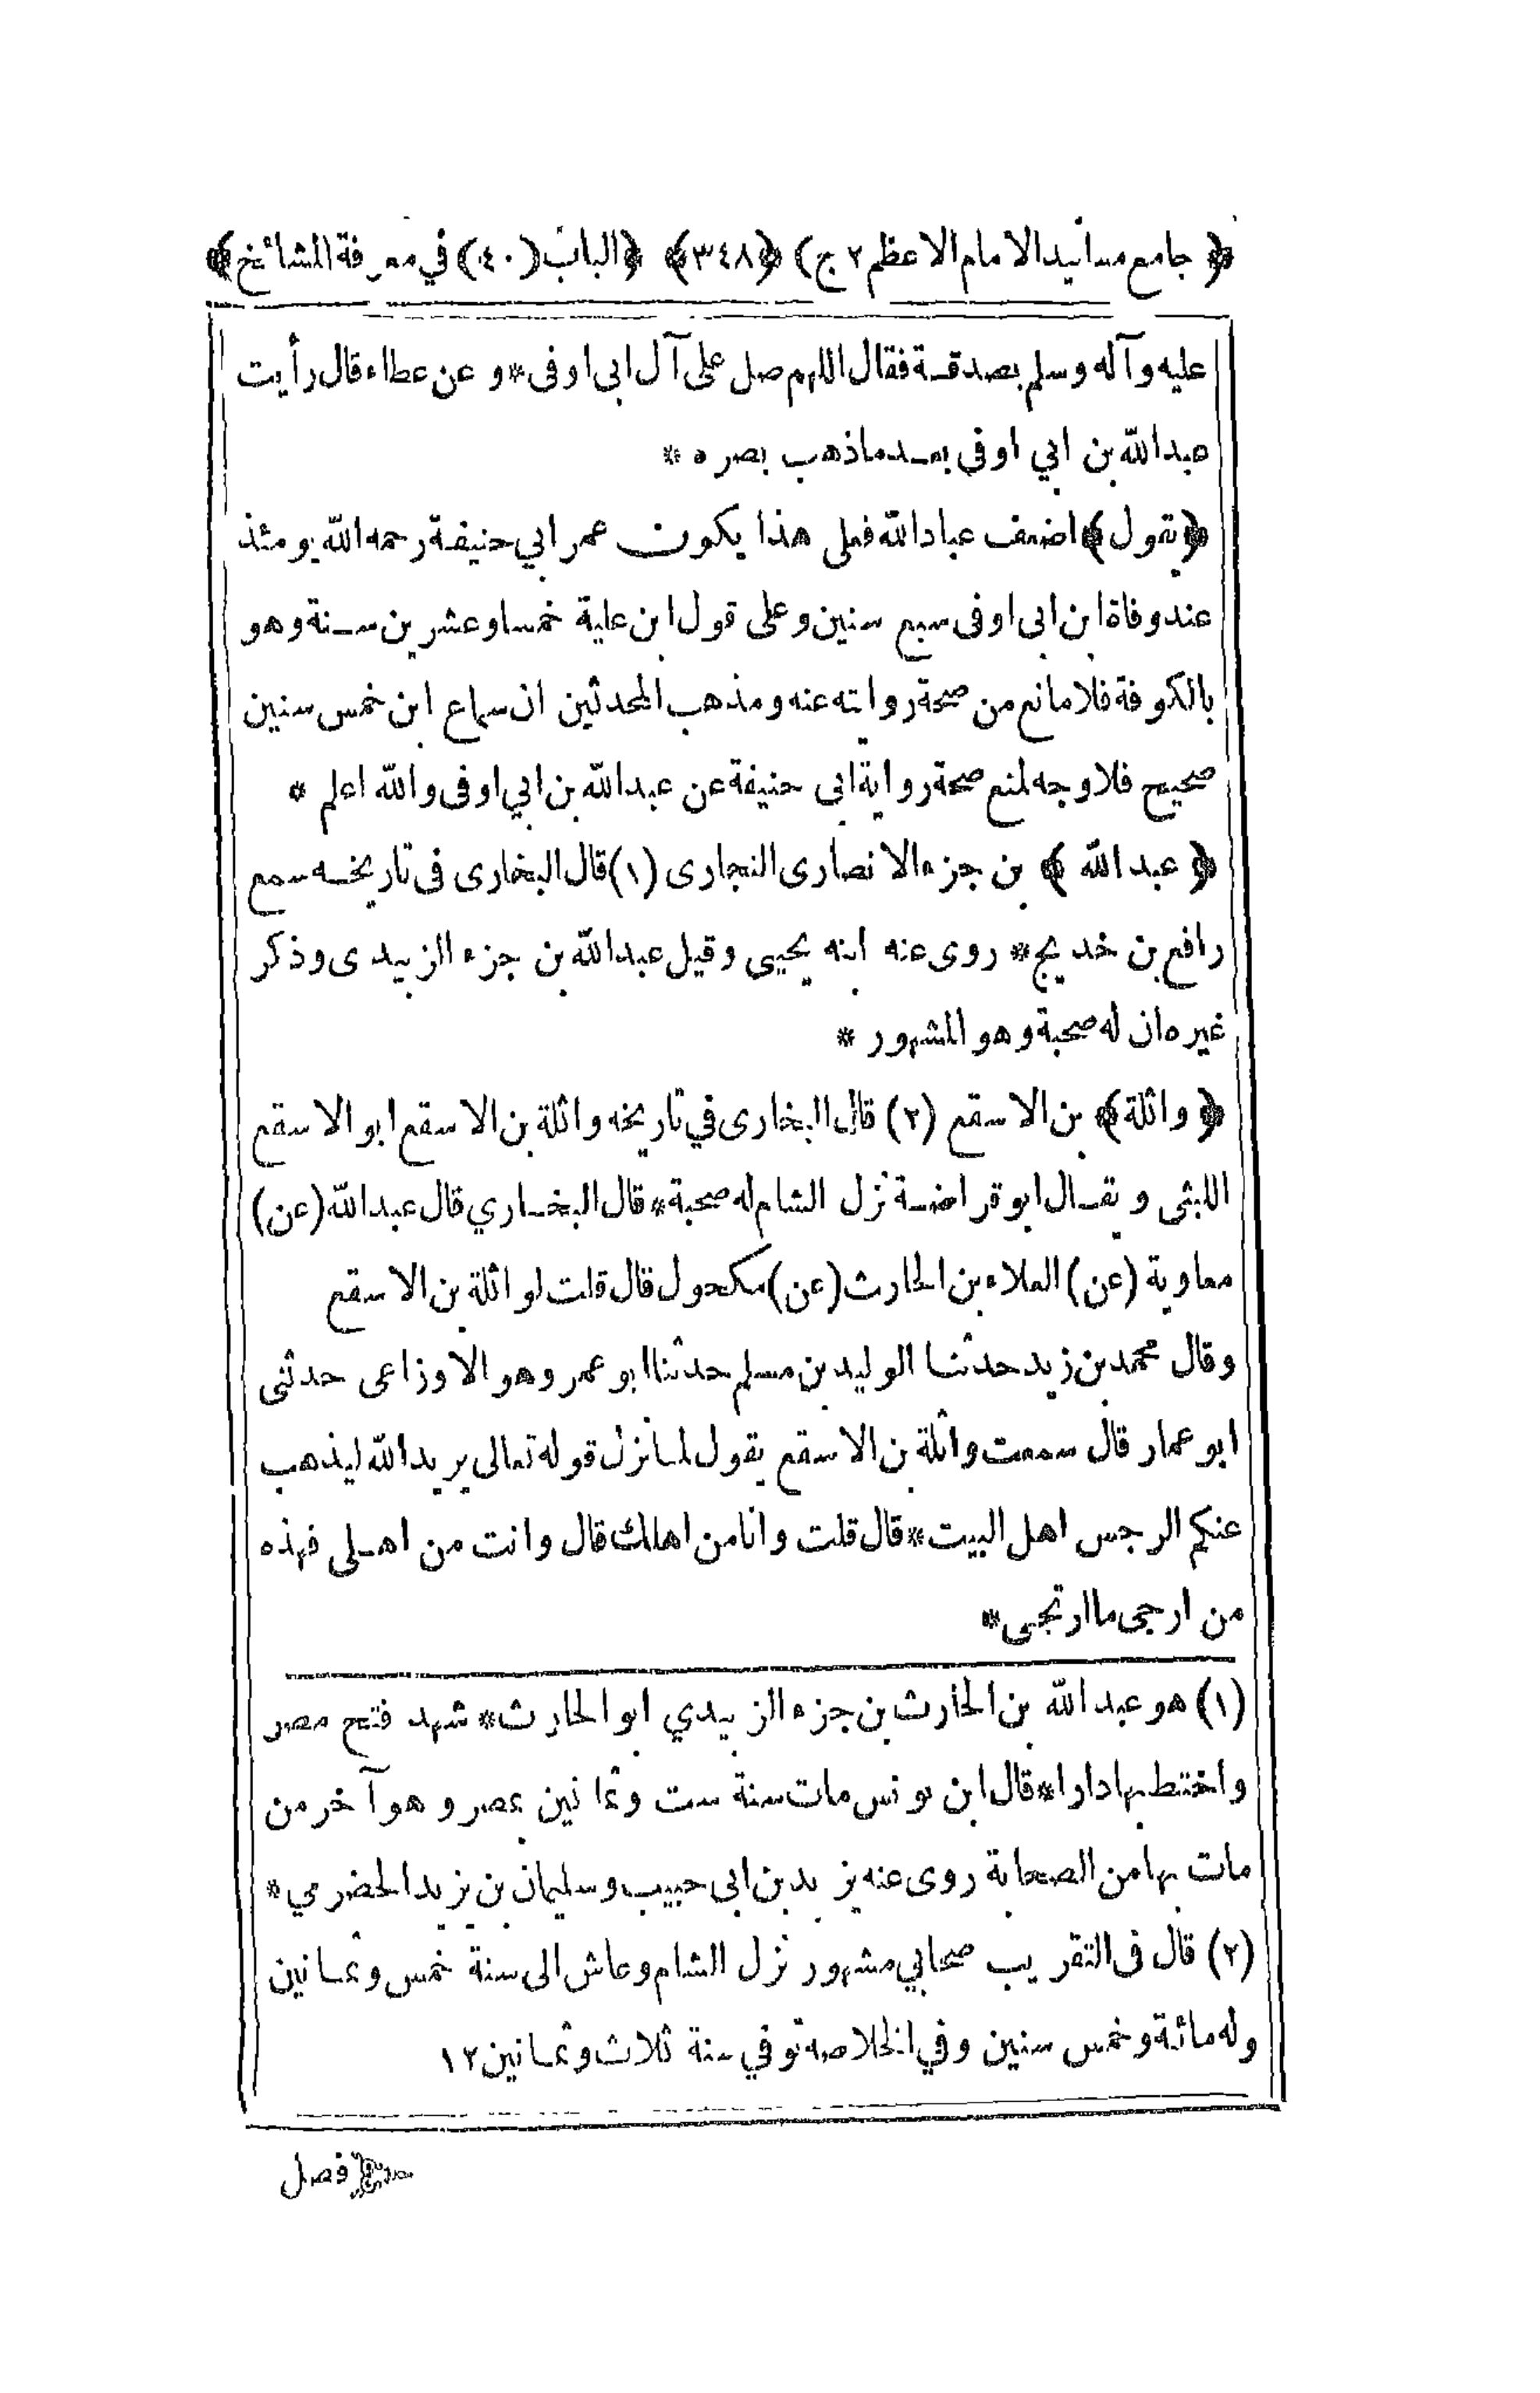 ﴿ جامع مسانيد الامام الاعظم ٢ ج ﴾ ﴿٣٤٨﴾ ﴿الباب (٤٠) في معرفة المشائخ﴾
عليه وآله وسلم بصدقة فقال اللهم صل على آل ابى اوفى * وعن عطاء قال رأيت
عبد الله بن ابي اوفى بعد ما ذهب بصره *
﴿يقول﴾ اضعف عباد الله فعلى هذا يكون عمر ابي حنيفة رحمه الله يومئذ
عند وفاة ابن ابى اوفى سبع سنين وعلى قول ابن علية خمسا وعشرين سنة وهو
بالكوفة فلا مانع من صحة روايته عنه ومذهب المحدثين ان سماع ابن خمس سنين
صحيح فلا وجه لمنع صحة رواية ابى حنيفة عن عبد الله بن ابي اوفى والله اعلم *
﴿ عبد الله ﴾ بن جزء الانصارى النجارى (١) قال البخارى فى تاريخه سمع
رافع بن خديج * روى عنه ابنه يحيى وقيل عبد الله بن جزء الزبيدى وذكر
غيره ان له صحبة وهو المشهور *
﴿ واثلة ﴾ بن الاسقع (٢) قال البخارى في تاريخه واثلة بن الاسقع ابو الاسقع
الليثى ويقال ابو قراضة نزل الشام له صحبة * قال البخاري قال عبد الله (عن)
معاوية (عن) العلاء بن الحارث (عن) مكحول قال قلت لواثلة بن الاسقع
وقال محمد بن زيد حدثنا الوليد بن مسلم حدثنا ابو عمر وهو الاوزاعى حدثنى
ابو عمار قال سمعت واثلة بن الاسقع يقول لما نزل قوله تعالى يريد الله ليذهب
عنكم الرجس اهل البيت * قال قلت وانا من اهلك قال وانت من اهلى فهذه
من ارجى ما ارتجى *
(١) هو عبد الله بن الحارث بن جزء الزبيدي ابو الحارث * شهد فتح مصر
واختط بها دارا * قال ابن يونس مات سنة ست وثمانين بمصر وهو آخر من
مات بها من الصحابة روى عنه يزيد بن ابى حبيب وسليمان بن يزيد الحضرمي *
(٢) قال فى التقريب صحابي مشهور نزل الشام وعاش الى سنة خمس وثمانين
وله مائة وخمس سنين وفي الخلاصه توفي سنة ثلاث وثمانين ١٢
فصل